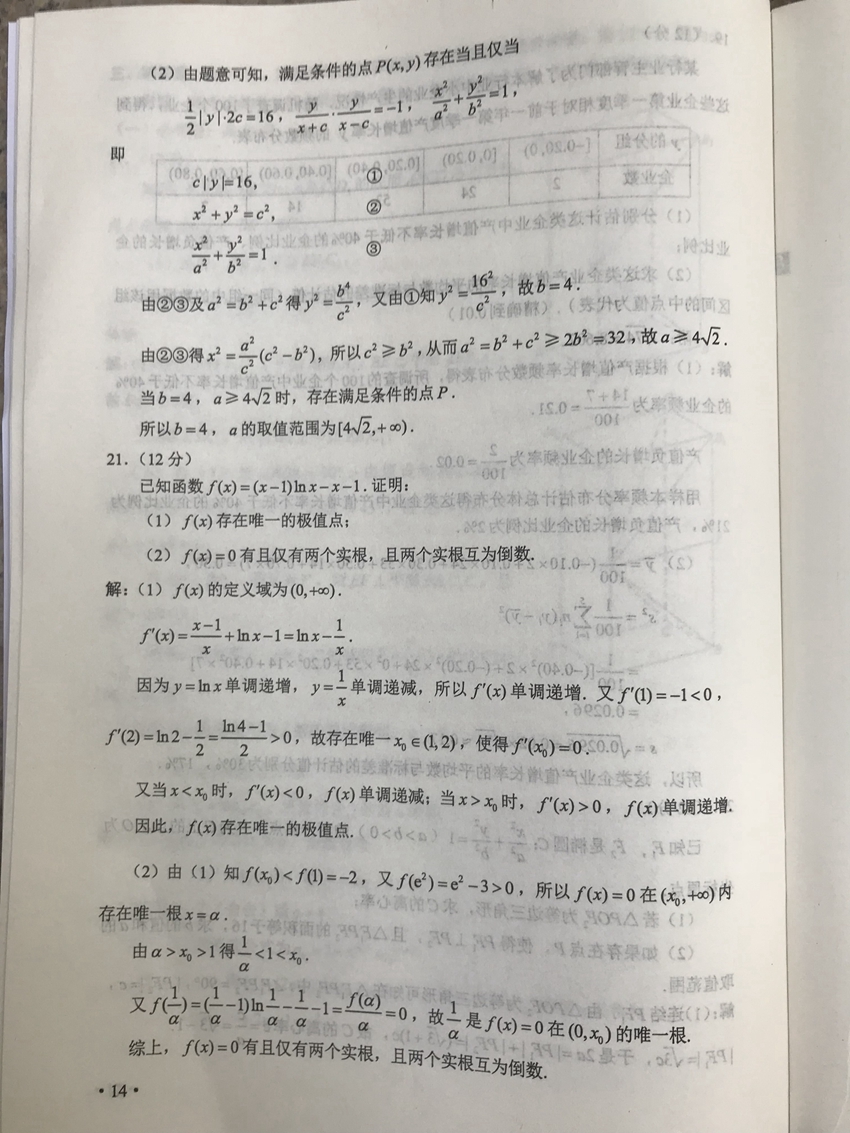 (2) 由题意可知，满足条件的点P(x,y)存在当且仅当
1/2|y|·2c=16，y/(x+c)·y/(x−c)=−1，x²/a²+y²/b²=1，
即
c|y|=16, ①
x²+y²=c², ②
x²/a²+y²/b²=1. ③
由②③及a²=b²+c²得y²=b⁴/c²，又由①知y²=16²/c²，故b=4.
由②③得x²=a²/c²(c²−b²)，所以c²≥b²，从而a²=b²+c²≥2b²=32，故a≥4√2.
当b=4，a≥4√2时，存在满足条件的点P.
所以b=4，a的取值范围为[4√2,+∞).
21. (12分)
已知函数f(x)=(x−1)ln x−x−1.证明：
(1) f(x)存在唯一的极值点；
(2) f(x)=0有且仅有两个实根，且两个实根互为倒数.
解：(1) f(x)的定义域为(0,+∞).
f′(x)=(x−1)/x+ln x−1=ln x−1/x.
因为y=ln x单调递增，y=1/x单调递减，所以f′(x)单调递增. 又f′(1)=−1<0，
f′(2)=ln2−1/2=(ln4−1)/2>0，故存在唯一x₀∈(1,2)，使得f′(x₀)=0.
又当x<x₀时，f′(x)<0，f(x)单调递减；当x>x₀时，f′(x)>0，f(x)单调递增.
因此，f(x)存在唯一的极值点.
(2) 由(1)知f(x₀)<f(1)=−2，又f(e²)=e²−3>0，所以f(x)=0在(x₀,+∞)内
存在唯一根x=α.
由α>x₀>1得1/α<1<x₀.
又f(1/α)=(1/α−1)ln 1/α−1/α−1=f(α)/α=0，故1/α是f(x)=0在(0,x₀)的唯一根.
综上，f(x)=0有且仅有两个实根，且两个实根互为倒数.
·14·